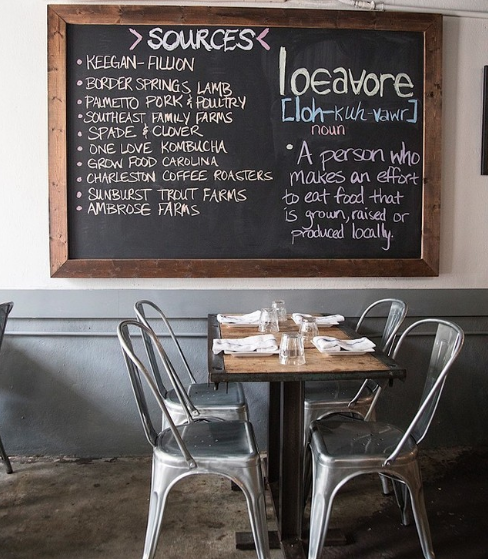 > SOURCES <
• KEEGAN-FILLION
• BORDER SPRINGS LAMB
• PALMETTO PORK & POULTRY
• SOUTHEAST FAMILY FARMS
• SPADE & CLOVER
• ONE LOVE KOMBUCHA
• GROW FOOD CAROLINA
• CHARLESTON COFFEE ROASTERS
• SUNBURST TROUT FARMS
• AMBROSE FARMS
locavore
[loh-kuh-vawr]
noun
• A person who
makes an effort
to eat food that
is grown, raised or
produced locally.